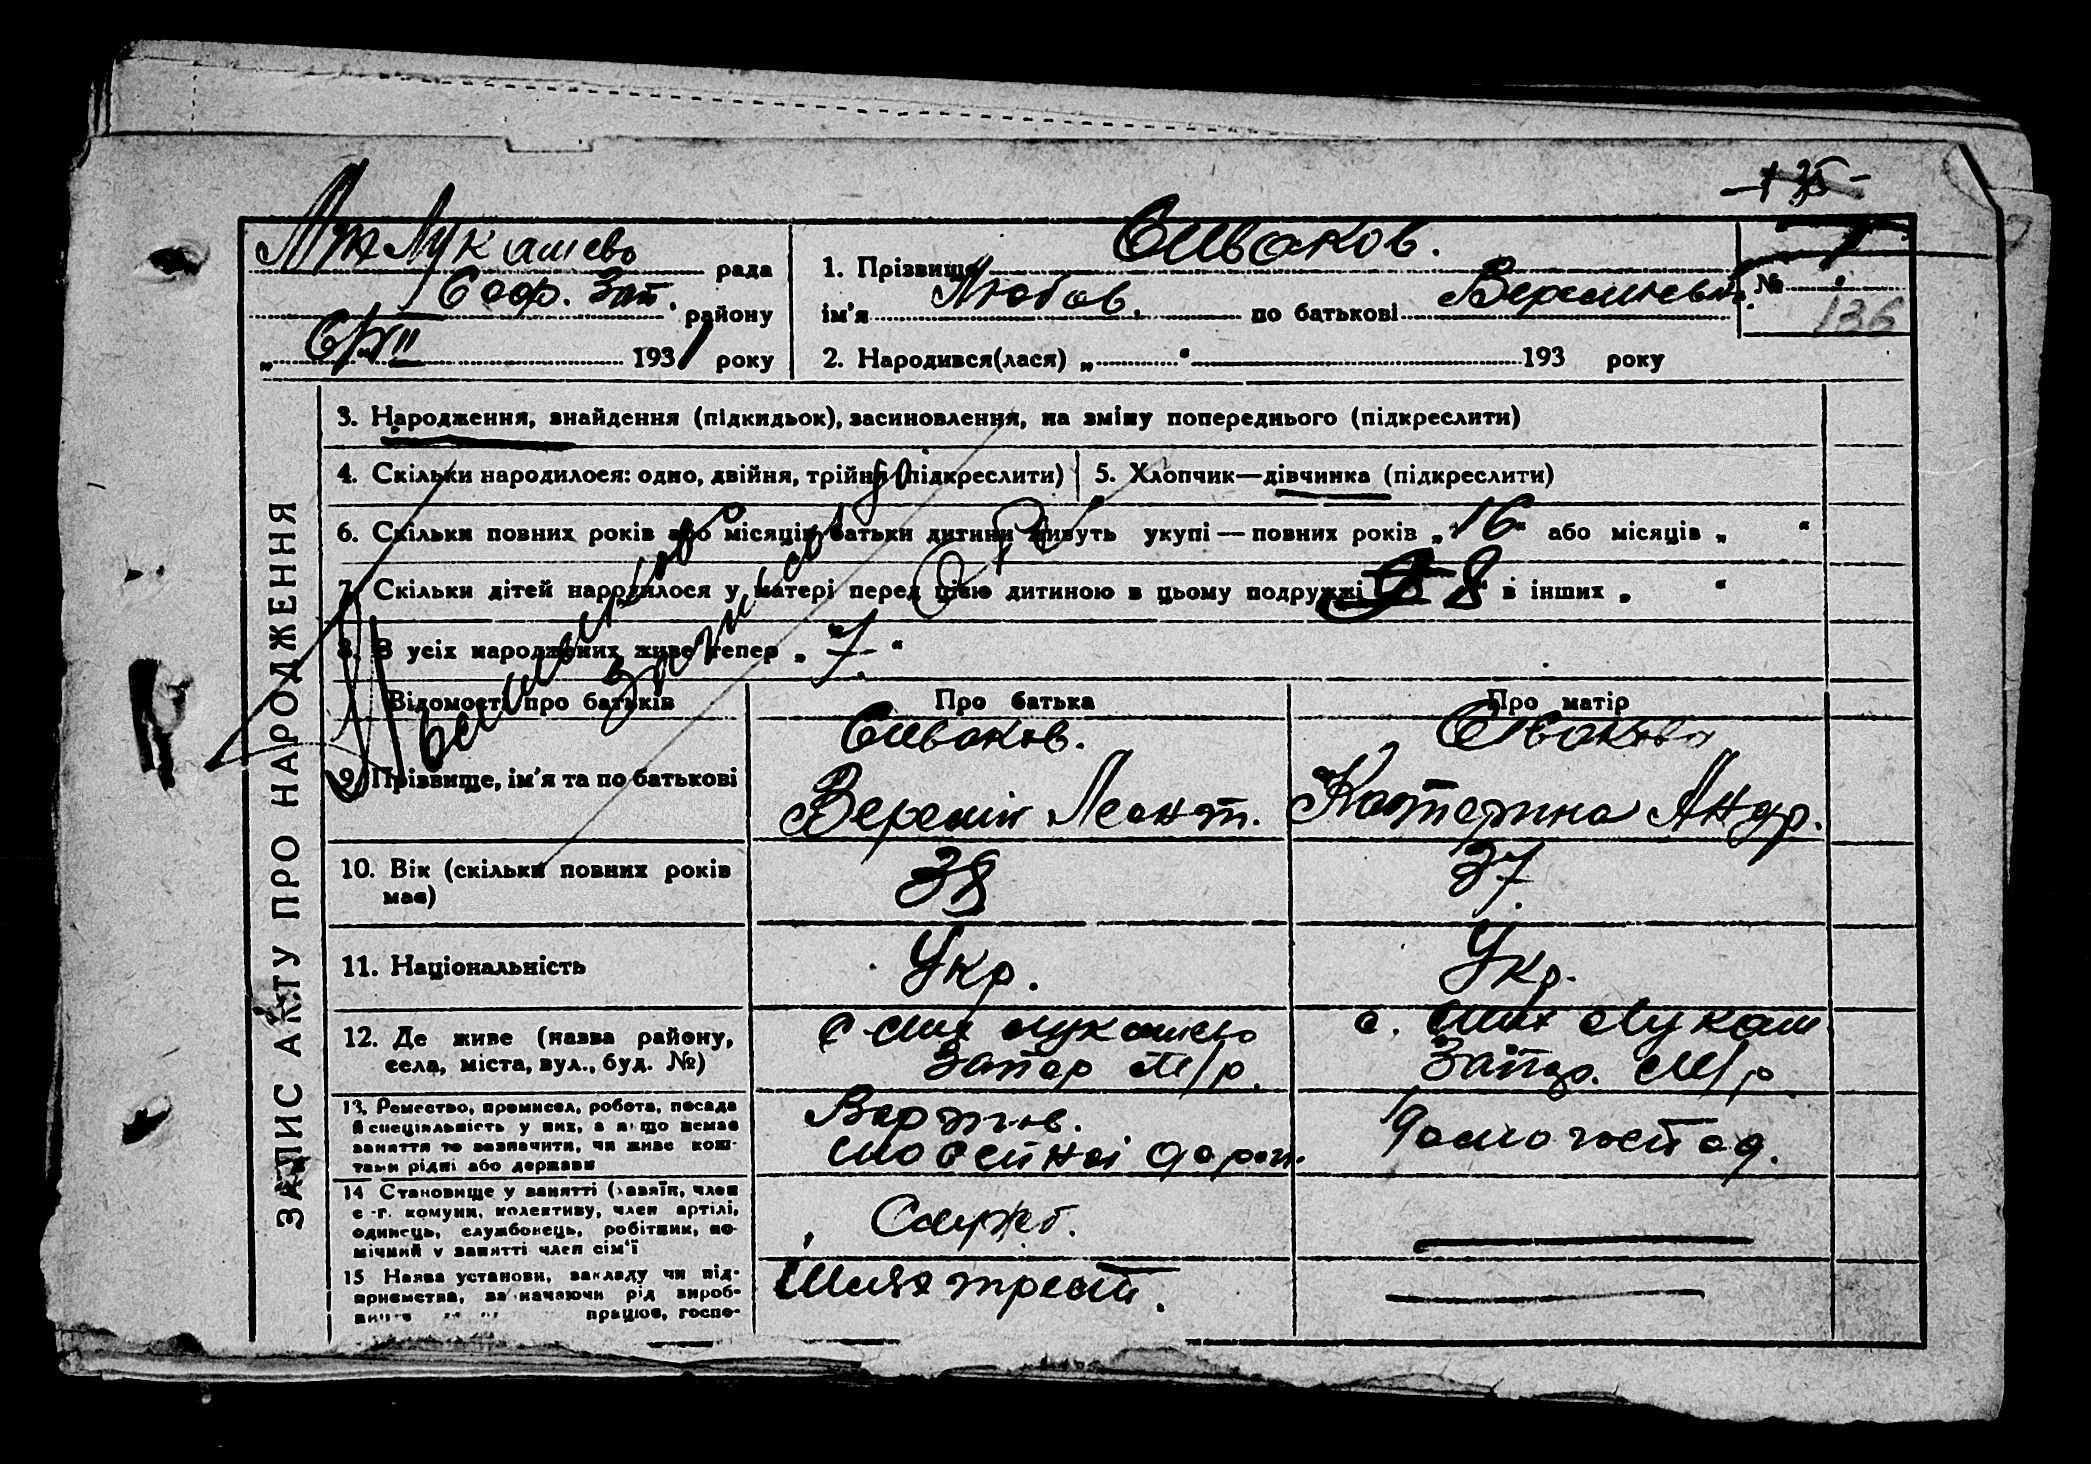 Лукашево рада
Соф. Зап. району
6/XII 1931 року
136
1. Прізвище Сиваков.
ім'я Любов. по батькові Веремієв. №
2. Народився(лася) „ “ 193 року
ЗАПИС АКТУ ПРО НАРОДЖЕННЯ
3. Народження, знайдення (підкидьок), засиновлення, на зміну попереднього (підкреслити)
4. Скільки народилося: одно, двійня, трійня (підкреслити)
5. Хлопчик—дівчинка (підкреслити)
6. Скільки повних років або місяців батьки дитини живуть укупі — повних років „16“ або місяців „ “
7. Скільки дітей народилося у матері перед цією дитиною в цьому подружжі 8 в інших „ “
8. З усіх народжених живе тепер „ 7 “
Відомості про батьків Про батька Про матір
9. Прізвище, ім'я та по батькові
Сиваков. Веремій Леонт.
Сивакова Катерина Андр.
10. Вік (скільки повних років має)
38
37
11. Національність
Укр.
Укр.
12. Де живе (назва району, села, міста, вул., буд. №)
Лукашево Запор М/р.
с. Лукаш Запор. М/р
13. Ремество, промисел, робота, посада
й спеціяльність у них, а якщо немає
заняття то зазначити, чи живе кош-
тами рідні або держави
дорож.
Домогоспод.
14 Становище у занятті (хазяїн, член
с.-г. комуни, колективу, член артілі,
одинець, службонець, робітник, по-
мічний у занятті член сім'ї
Служб.
15 Назва установи, закладу чи під-
приємства, зазначаючи рід вироб-
працює, госпо-
Шляхтрест.